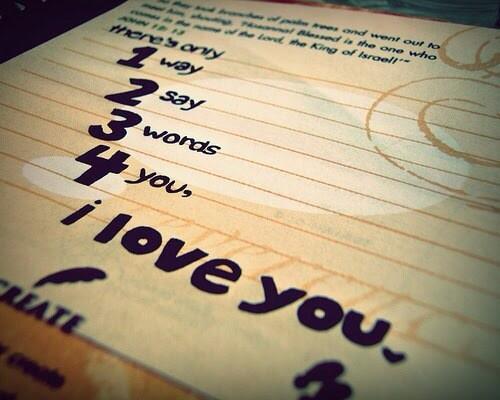 they took branches of palm trees and went out to
meet him, shouting, "Hosanna! Blessed is the one who
comes in the name of the Lord, the King of Israel!"
JOHN 12:13
there's only
1 way
2 say
3 words
4 you,
i love you.
CREATE
create